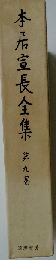 本居宣長全集
第九巻
筑摩書房